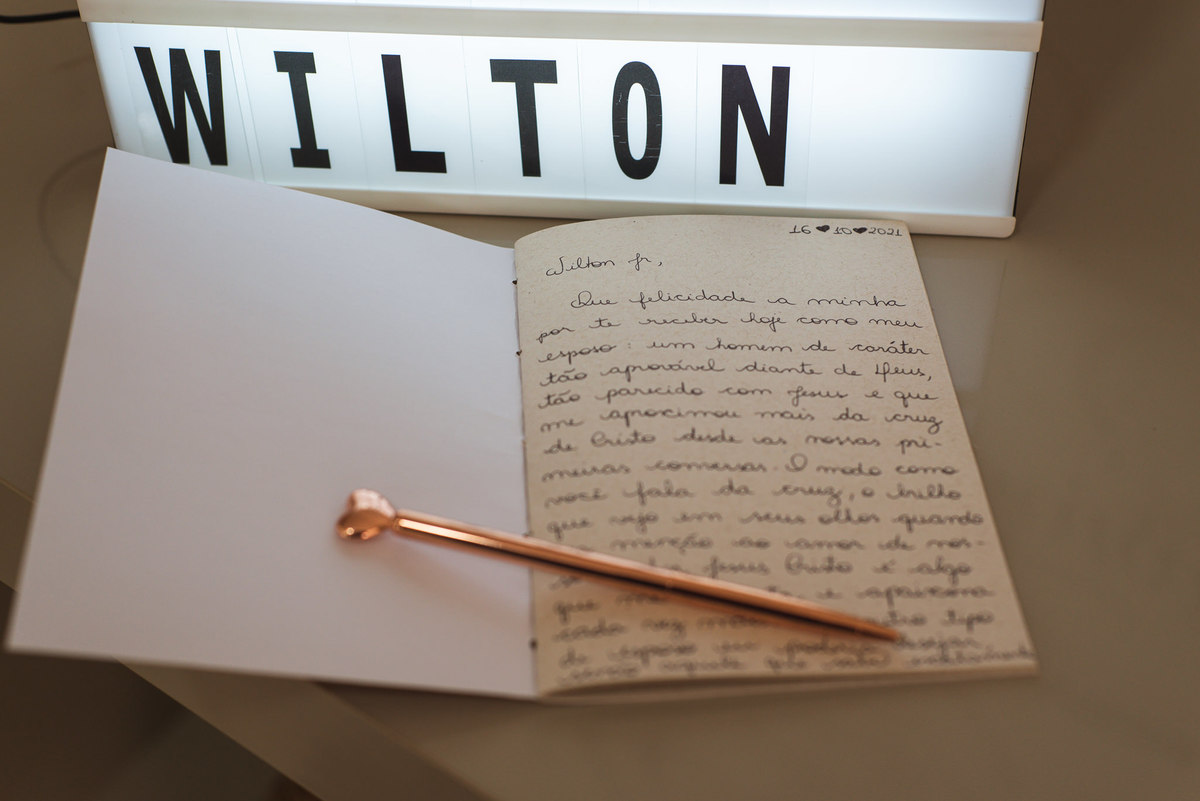 WILTON
16 ♥ 10 ♥ 2021
Wilton Jr,
Que felicidade a minha
por te receber hoje como meu
esposo: um homem de caráter
tão aprovável diante de Deus,
tão parecido com Jesus e que
me aproximou mais da cruz
de Cristo desde as nossas pri-
meiras conversas. O modo como
você fala da cruz, o brilho
que vejo em seus olhos quando
menção ao amor de nos-
Jesus Cristo é algo
que me e aprisiona
cada vez tipo
de esposo eu poderia desejar